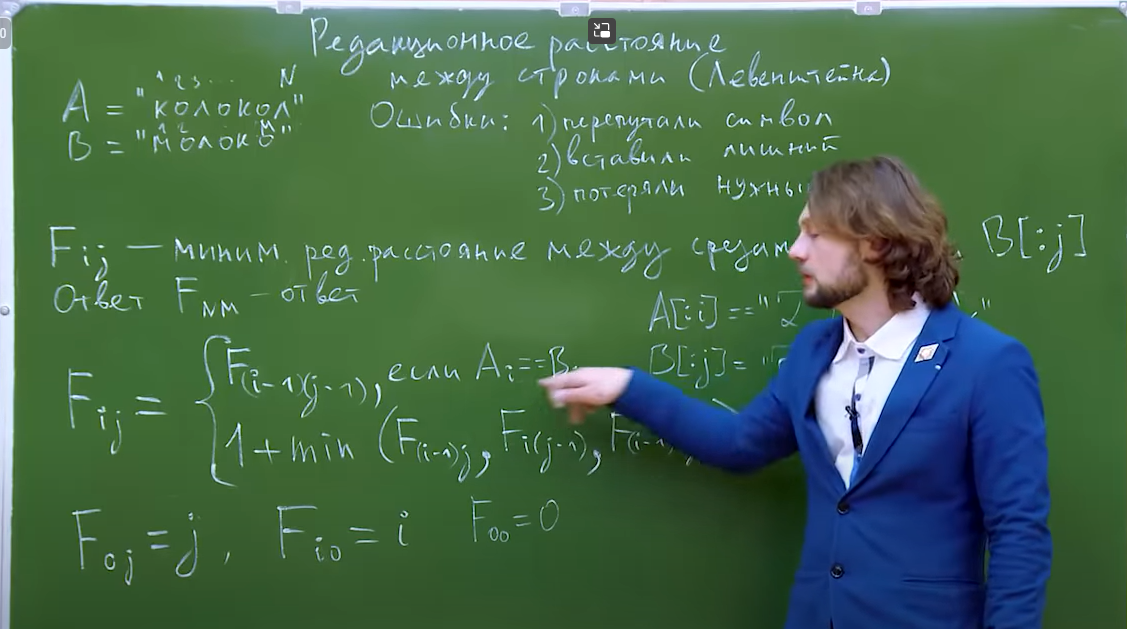 Редакционное расстояние
между строками (Левенштейна)
1 2 3 ... N
A = "колокол"
1 2 M
B = "молоко"
Ошибки: 1) перепутали символ
2) вставили лишний
3) потеряли
Fij — миним. ред. расстояние между B[:j]
Ответ FNM — ответ
A[:i] == "
B[:j] = "
Fij = { F(i-1)(j-1), если Ai == B
1 + min (F(i-1)j, Fi(j-1), F(i-1
F0j = j, Fi0 = i F00 = 0